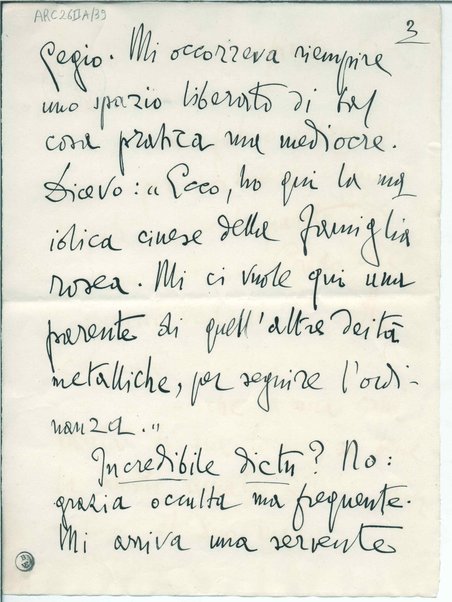 ARC26IIA/39
3
gegio. Mi occorreva riempire
uno spazio liberato di tal
cosa pratica ma mediocre.
Dicevo: "Ecco, ho qui la ma
iolica cinese della famiglia
rosea. Mi ci vuole qui una
parente di quell'altre deità
metalliche, per seguire l'ordi-
nanza."
Incredibile dictu? No:
grazia occulta ma frequente.
Mi arriva una servente